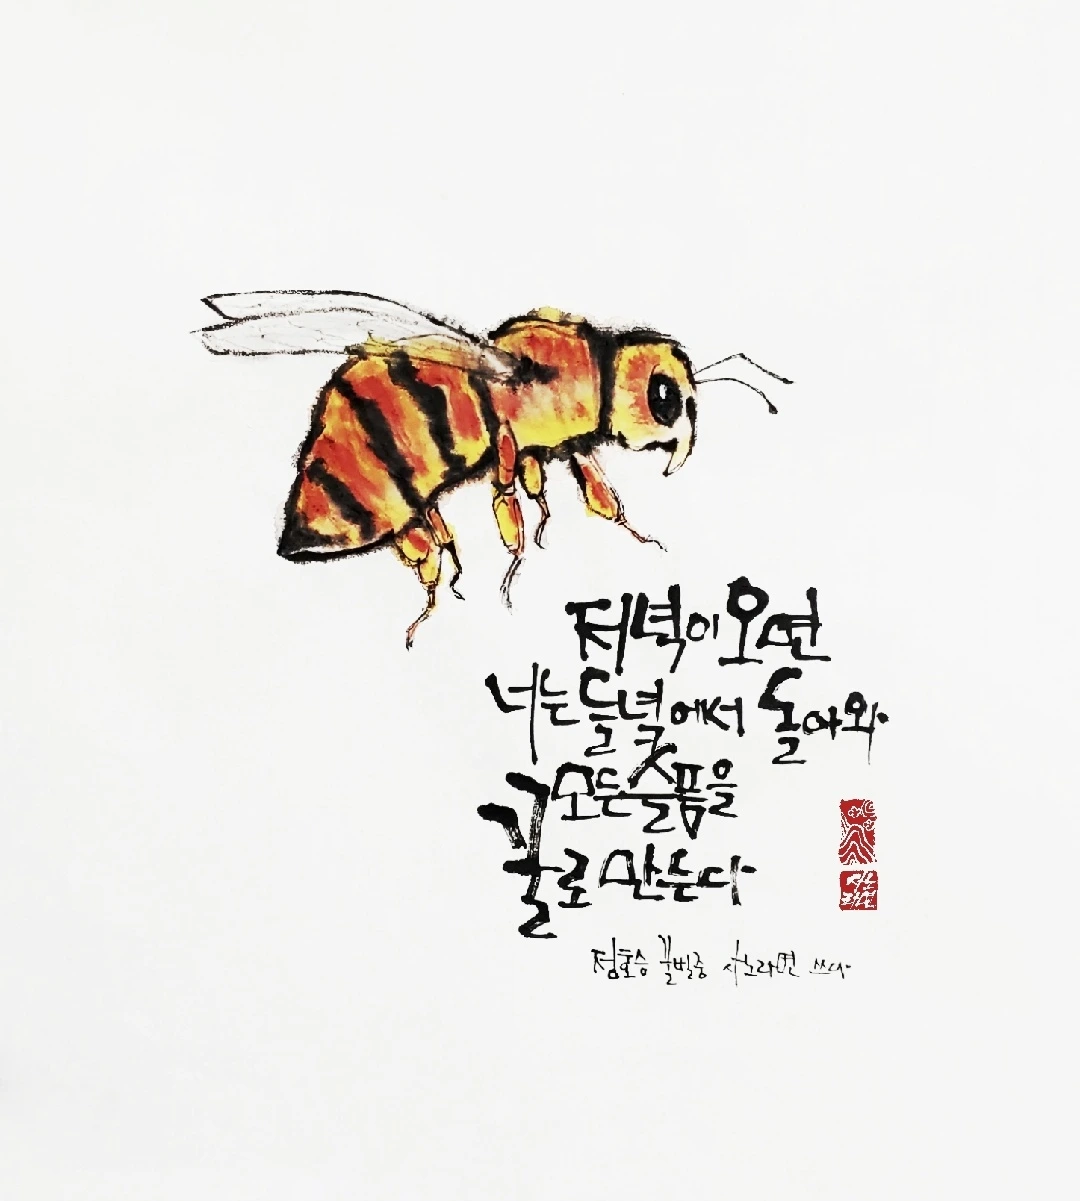 저녁이 오면
너는 들녘에서 돌아와
모든 슬픔을
꿀로 만든다
정호승 꿀벌 중 시노라면 쓰다